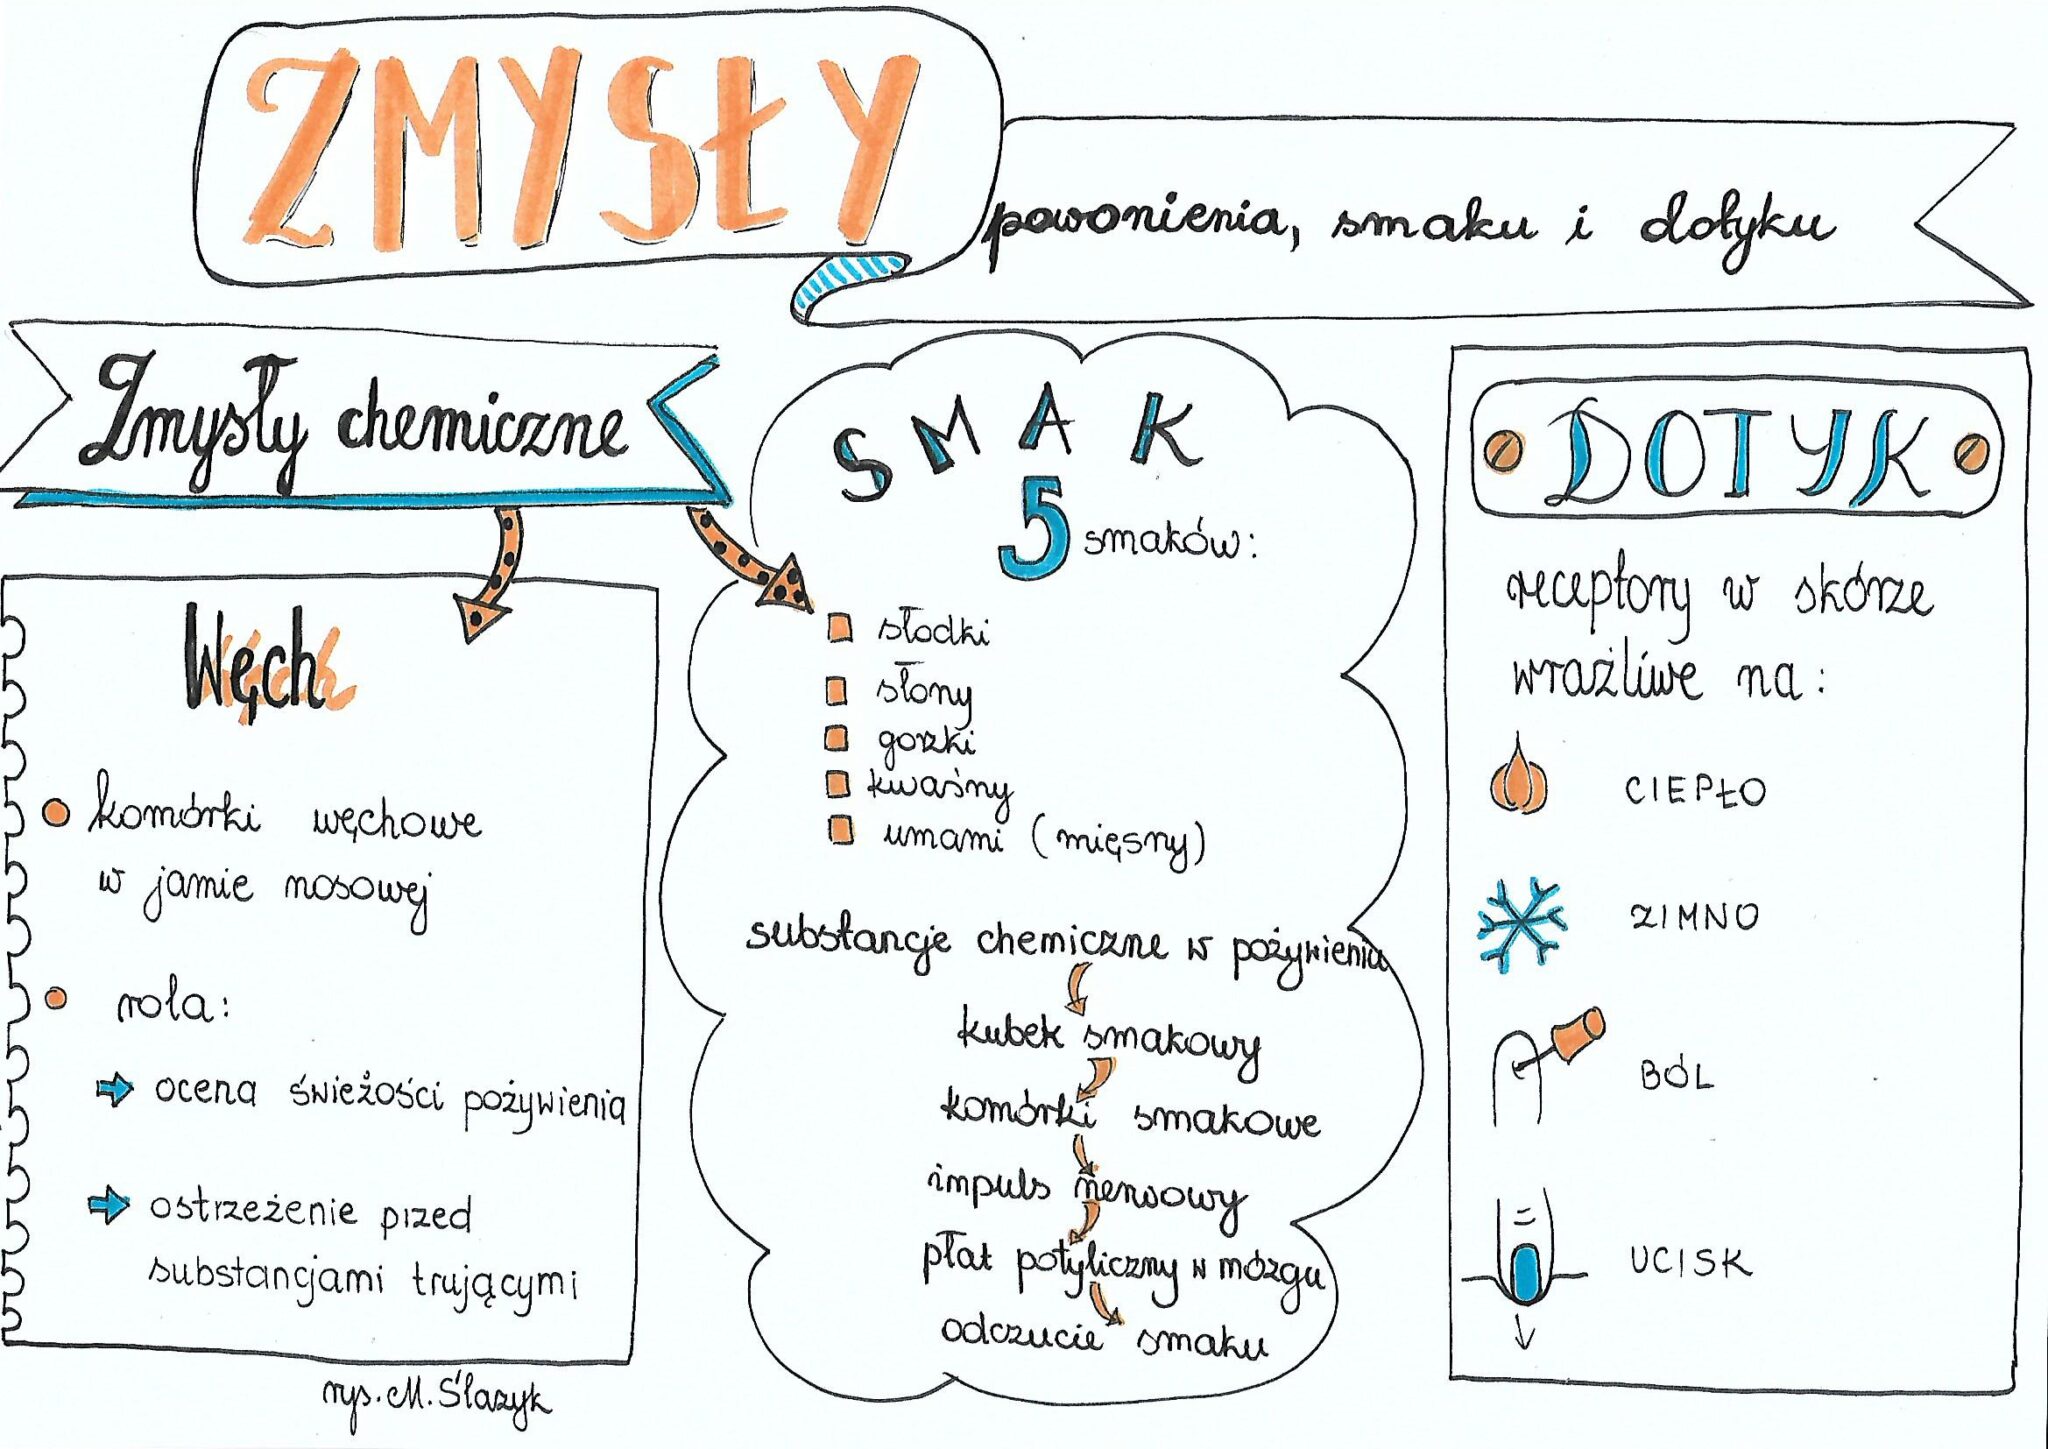 ZMYSŁY
powonienia, smaku i dotyku
Zmysły chemiczne
Węch
komórki węchowe
w jamie nosowej
rola:
ocena świeżości pożywienia
ostrzeżenie przed
substancjami trującymi
rys. M. Ślazyk
SMAK
5 smaków:
słodki
słony
gorzki
kwaśny
umami (mięsny)
substancje chemiczne w pożywieniu
kubek smakowy
komórki smakowe
impuls nerwowy
płat potyliczny w mózgu
odczucie smaku
DOTYK
receptory w skórze
wrażliwe na:
CIEPŁO
ZIMNO
BÓL
UCISK